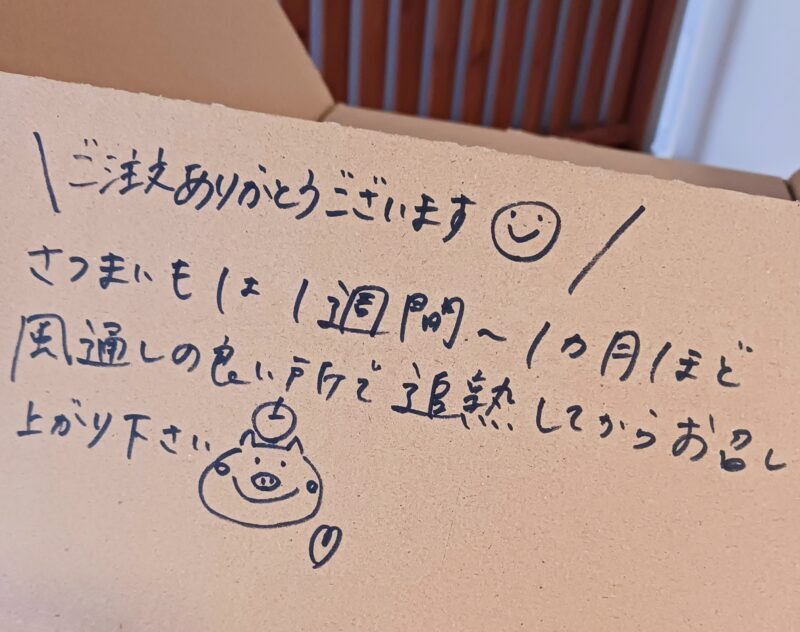 \ご注文ありがとうございます /
さつまいもは1週間~1カ月ほど
風通しの良い所で追熟してからお召し
上がり下さい